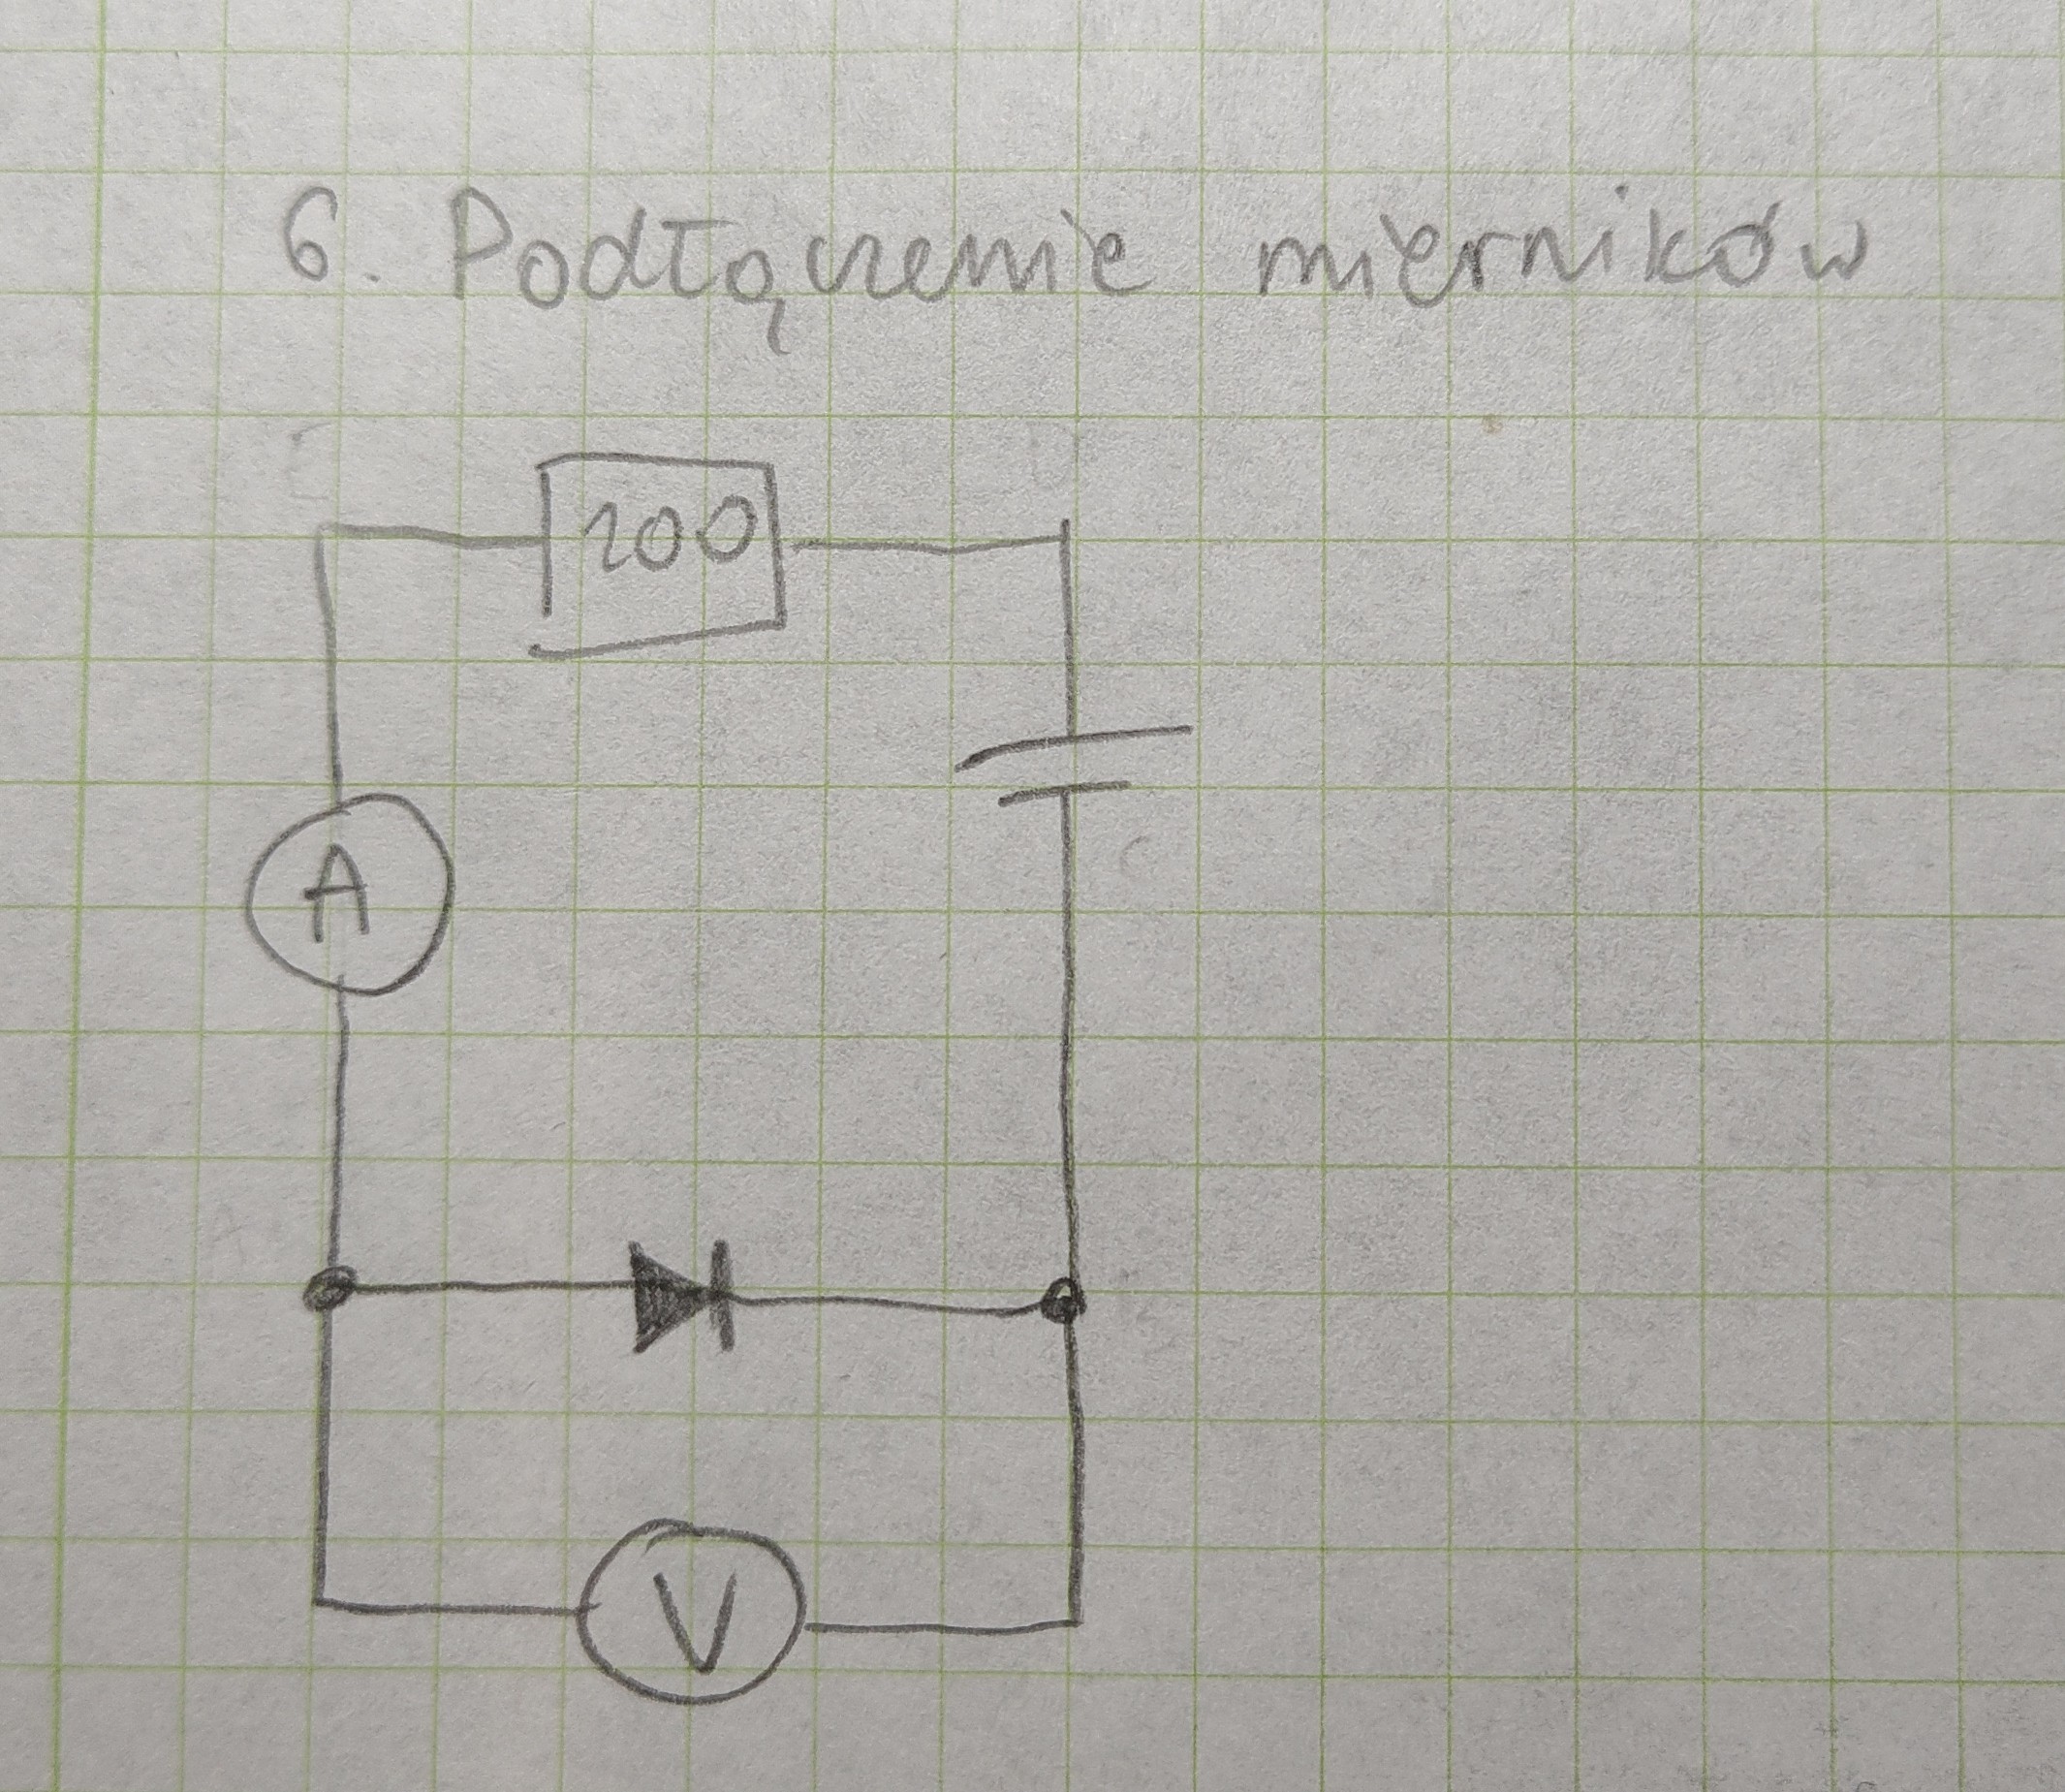 6. Podłączenie mierników
200
A
V